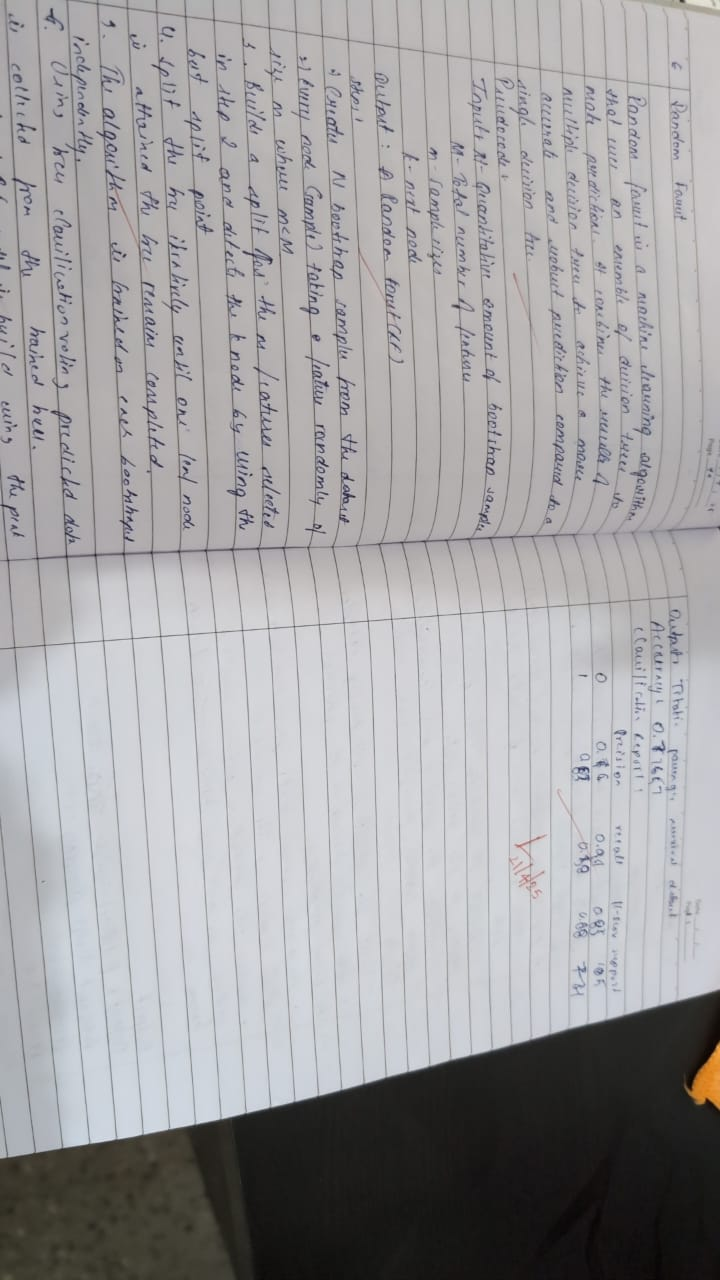 6 Random Forest
Random forest is a machine learning algorithm
that uses an ensemble of decision trees to
make predictions. It combines the results of
multiple decision trees to achieve a more
accurate and robust prediction compared to a
single decision tree
Pseudocode:
Input: N- Quantitative amount of bootstrap sample
M- Total number of features
m- sample size
k- next node
Output: A Random forest (RF)
Steps:
1) Creates N bootstrap samples from the dataset
2) Every node (sample) taking a feature randomly of
size m where m<M
3. Builds a split for the m features selected
in step 2 and detects the k node by using the
best split point
4. Split the tree iteratively until one leaf node
is attained the tree remain completed.
5. The algorithm is trained on each bootstrap
independently.
6. Using tree classification voting predicted data
is collected from the trained trees.
build using the
Output: Titanic passenger survival dataset
Accuracy:
Classification Report:
Precision recall support
0
1
21/4/25